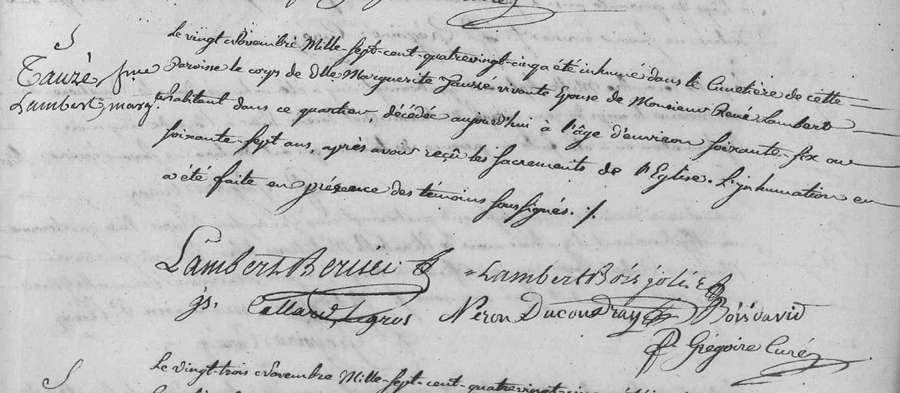 S
Tauzé fme
Lambert, margte
Le vingt Novembre Mille-sept-cent-quatrevingt-cinq a été inhumé dans le Cimetière de cette
Paroisse le corps de Dlle Marguerite Tauzié vivante Epouse de Monsieur René Lambert
habitant dans ce quartier, décédée aujourd'hui a l'âge d'environ soixante-six ou
soixante-sept ans, après avoir reçû les sacrements de l'Eglise. L'inhumation en
a été faite en présence des témoins soussignés ./.
Lambert Lambert Boisjolie
js. Callard Legros Néron Ducoudray Boisdavid
fr. Grégoire Curé
S
Le vingt-trois Novembre Mille-sept-cent-quatrevingt-cinq